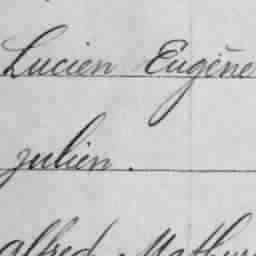 Lucien Eugène
Julien.
Alfred, Mathur